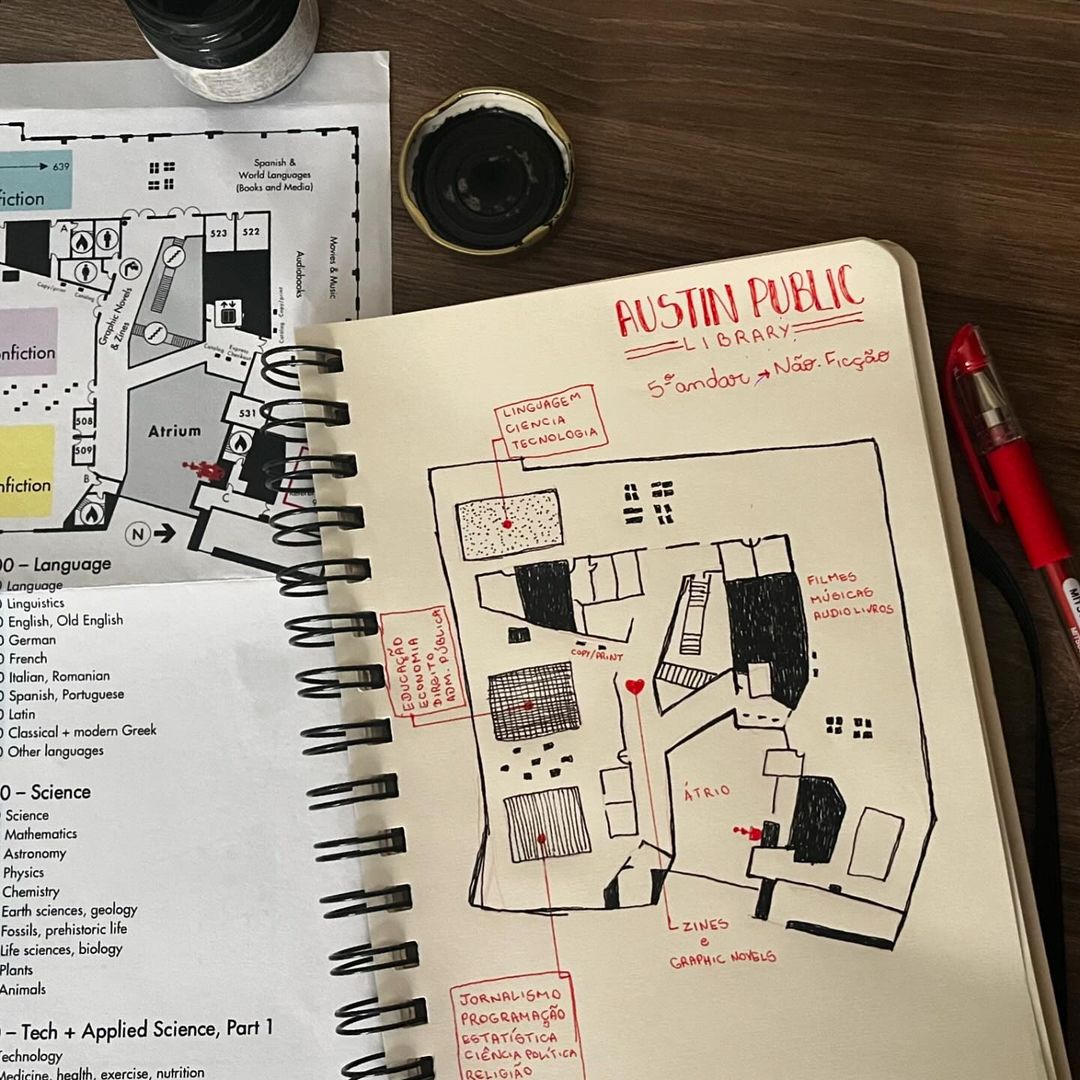 639
fiction
Spanish &
World Languages
(Books and Media)
A
523
522
Movies & Music
Audiobooks
Copy/print
Catalog
Graphic Novels
& Zines
Catalog
Express
Checkout
Catalog
Copy/print
nfiction
508
509
531
Atrium
nfiction
B
C
N
00 – Language
Language
Linguistics
English, Old English
German
French
Italian, Romanian
Spanish, Portuguese
Latin
Classical + modern Greek
Other languages
0 – Science
Science
Mathematics
Astronomy
Physics
Chemistry
Earth sciences, geology
Fossils, prehistoric life
Life sciences, biology
Plants
Animals
– Tech + Applied Science, Part 1
Technology
Medicine, health, exercise, nutrition
AUSTIN PUBLIC
LIBRARY
5º andar → Não-Ficção
LINGUAGEM
CIENCIA
TECNOLOGIA
FILMES
MÚSICAS
AUDIO LIVROS
EDUCAÇÃO
ECONOMIA
DIREITO
ADM. PÚBLICA
COPY/PRINT
ÁTRIO
ZINES
e
GRAPHIC NOVELS
JORNALISMO
PROGRAMAÇÃO
ESTATÍSTICA
CIÊNCIA POLÍTICA
RELIGIÃO